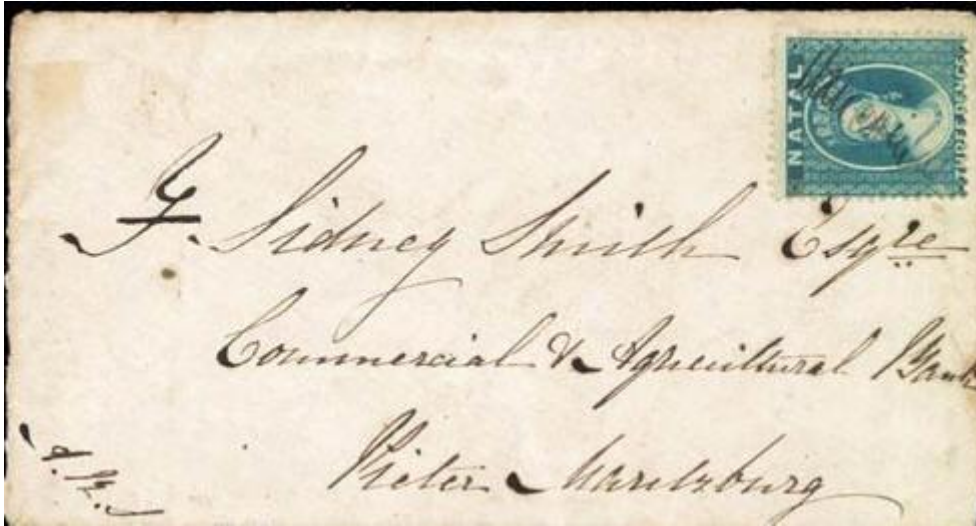 NATAL
F. Sidney Smith Esqre
Commercial & Agricultural Bank
Pieter Maritzburg